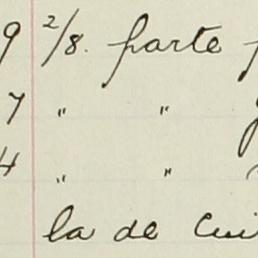 9 2/8. parte
7 " "
4 " "
la de